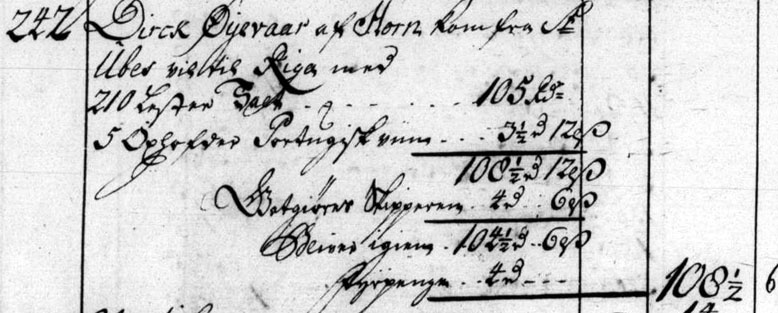 242 Dirck Øyevaar af Horn kom fra St
Übes vil til Riga med
210 Lester Salt - - - - - - 105 Rd
5 Oxhofder Portugisk viin - - - 3½ d 12 ß
108½ d 12 ß
Godtgiøres Skipperen - 4 d - 6 ß
Bliver igien - 104½ d - 6 ß
Fyrpenge - 4 d - - - 108½ 6